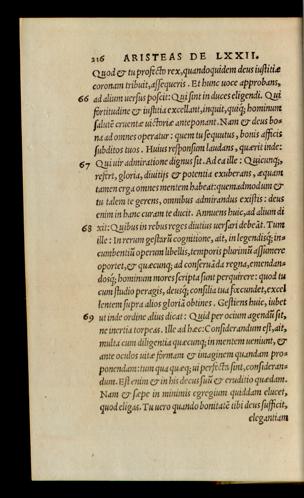 216 ARISTEAS DE LXXII.
Quod & tu profecto rex, quandoquidem deus iustitiæ
coronam tribuit, assequeris. Et hunc uoce approbans,
66 ad alium uersus poscit: Qui sint in duces eligendi. Qui
fortitudine & iustitia excellant, inquit, quiq; hominum
salutē cruentæ uictoriæ anteponant. Nam & deus bo-
na ad omnes operatur: quem tu sequutus, bonis afficis
subditos tuos. Huius responsum laudans, quærit inde:
67 Qui uir admiratione dignus sit. Ad ea ille: Quicunq;,
refert, gloria, diuitijs & potentia exuberans, æquam
tamen erga omnes mentem habeat: quemadmodum &
tu talem te gerens, omnibus admirandus existis: deus
enim in hanc curam te ducit. Annuens huic, ad alium di
68 xit: Quibus in rebus reges diutius uersari debeāt. Tum
ille: In rerum gestarū cognitione, ait, in legendisq́; in-
cumbentiū operum libellis, temporis plurimū assumere
oportet, & quæcunq; ad conseruāda regna, emendan-
dosq́; hominum mores scripta sunt perquirere: quod tu
cum studio peragis, deusq́; consilia tua fœcundet, excel
lentem supra alios gloriā obtines. Gestiens huic, iubet
69 ut inde ordine alius dicat: Quid per ocium agendū sit,
ne inertia torpeas. Ille ad hæc: Considerandum est, ait,
multa cum diligentia quæcunq; in mentem ueniunt, &
ante oculos uitæ formam & imaginem quandam pro-
ponendam: tum qua quæq; ui perfecta sint, consideran-
dum. Est enim & in his decus suū & eruditio quædam.
Nam & sæpe in minimis egregium quiddam elucet,
quod eligas. Tu uero quando bonitatē tibi deus sufficit,
elegantiam